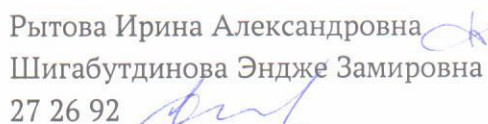 Рытова Ирина Александровна
Шигабутдинова Эндже Замировна
27 26 92